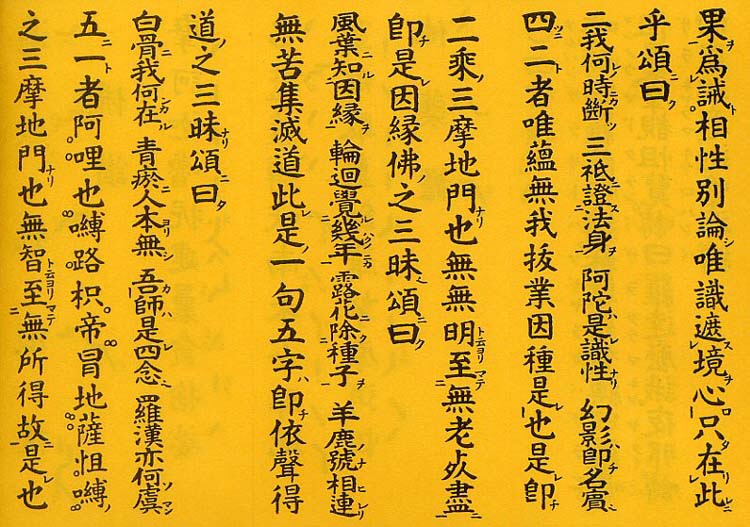 果爲誡相性別論唯識遮境心只在此
乎頌曰
二我何時斷 三祇證法身 阿陀是識性 幻影即名賓
四二者唯蘊無我拔業因種是也是即
二乘三摩地門也無無明至無老死盡
即是因縁佛之三昧頌曰
風葉知因縁 輪迴覺幾年 露花除種子 羊鹿號相連
無苦集滅道此是一句五字即依聲得
道之三昧頌曰
白骨我何在 青瘀人本無 吾師是四念 羅漢亦何虞
五一者阿哩也嚩路枳帝冒地薩怛嚩
之三摩地門也無智至無所得故是也